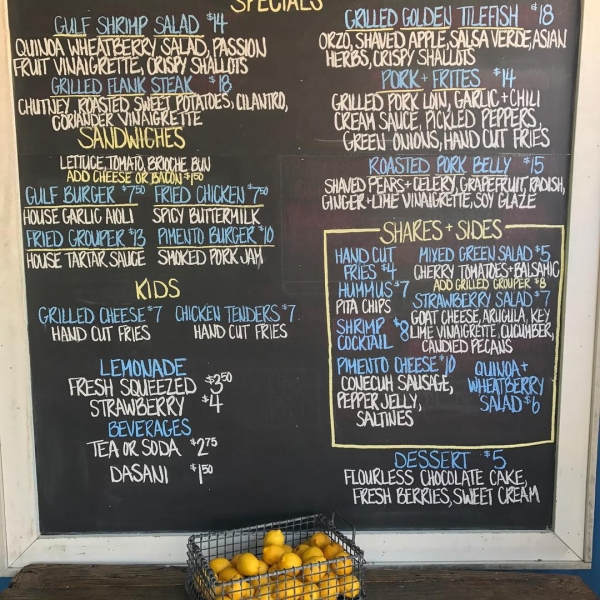 SPECIALS
GULF SHRIMP SALAD $14
QUINOA WHEATBERRY SALAD, PASSION
FRUIT VINAIGRETTE, CRISPY SHALLOTS
GRILLED FLANK STEAK $18
CHUTNEY, ROASTED SWEET POTATOES, CILANTRO,
CORIANDER VINAIGRETTE
GRILLED GOLDEN TILEFISH $18
ORZO, SHAVED APPLE, SALSA VERDE, ASIAN
HERBS, CRISPY SHALLOTS
PORK + FRITES $14
GRILLED PORK LOIN, GARLIC + CHILI
CREAM SAUCE, PICKLED PEPPERS,
GREEN ONIONS, HAND CUT FRIES
ROASTED PORK BELLY $15
SHAVED PEARS + CELERY, GRAPEFRUIT, RADISH,
GINGER + LIME VINAIGRETTE, SOY GLAZE
SANDWICHES
LETTUCE, TOMATO, BRIOCHE BUN
ADD CHEESE OR BACON $1.50
GULF BURGER $7.50
HOUSE GARLIC AIOLI
FRIED CHICKEN $7.50
SPICY BUTTERMILK
FRIED GROUPER $13
HOUSE TARTAR SAUCE
PIMENTO BURGER $10
SMOKED PORK JAM
KIDS
GRILLED CHEESE $7
HAND CUT FRIES
CHICKEN TENDERS $7
HAND CUT FRIES
LEMONADE
FRESH SQUEEZED $3.50
STRAWBERRY $4
BEVERAGES
TEA OR SODA $2.75
DASANI $1.50
SHARES + SIDES
HAND CUT
FRIES $4
HUMMUS $7
PITA CHIPS
SHRIMP
COCKTAIL $8
PIMENTO CHEESE $10
CONECUH SAUSAGE,
PEPPER JELLY,
SALTINES
MIXED GREEN SALAD $5
CHERRY TOMATOES + BALSAMIC
ADD GRILLED GROUPER $8
STRAWBERRY SALAD $7
GOAT CHEESE, ARUGULA, KEY
LIME VINAIGRETTE, CUCUMBER,
CANDIED PECANS
QUINOA +
WHEATBERRY
SALAD $6
DESSERT $5
FLOURLESS CHOCOLATE CAKE,
FRESH BERRIES, SWEET CREAM